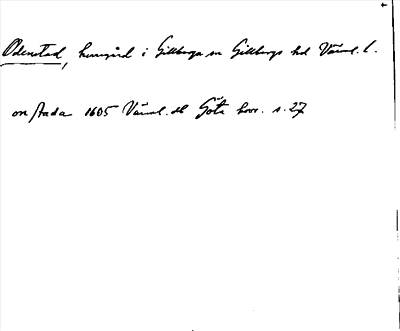 Odenstad, herrgård i Gillberga sn Gillbergs hd Värml. l.
on stada 1605 Värml. dl Göta hovr. s. 27